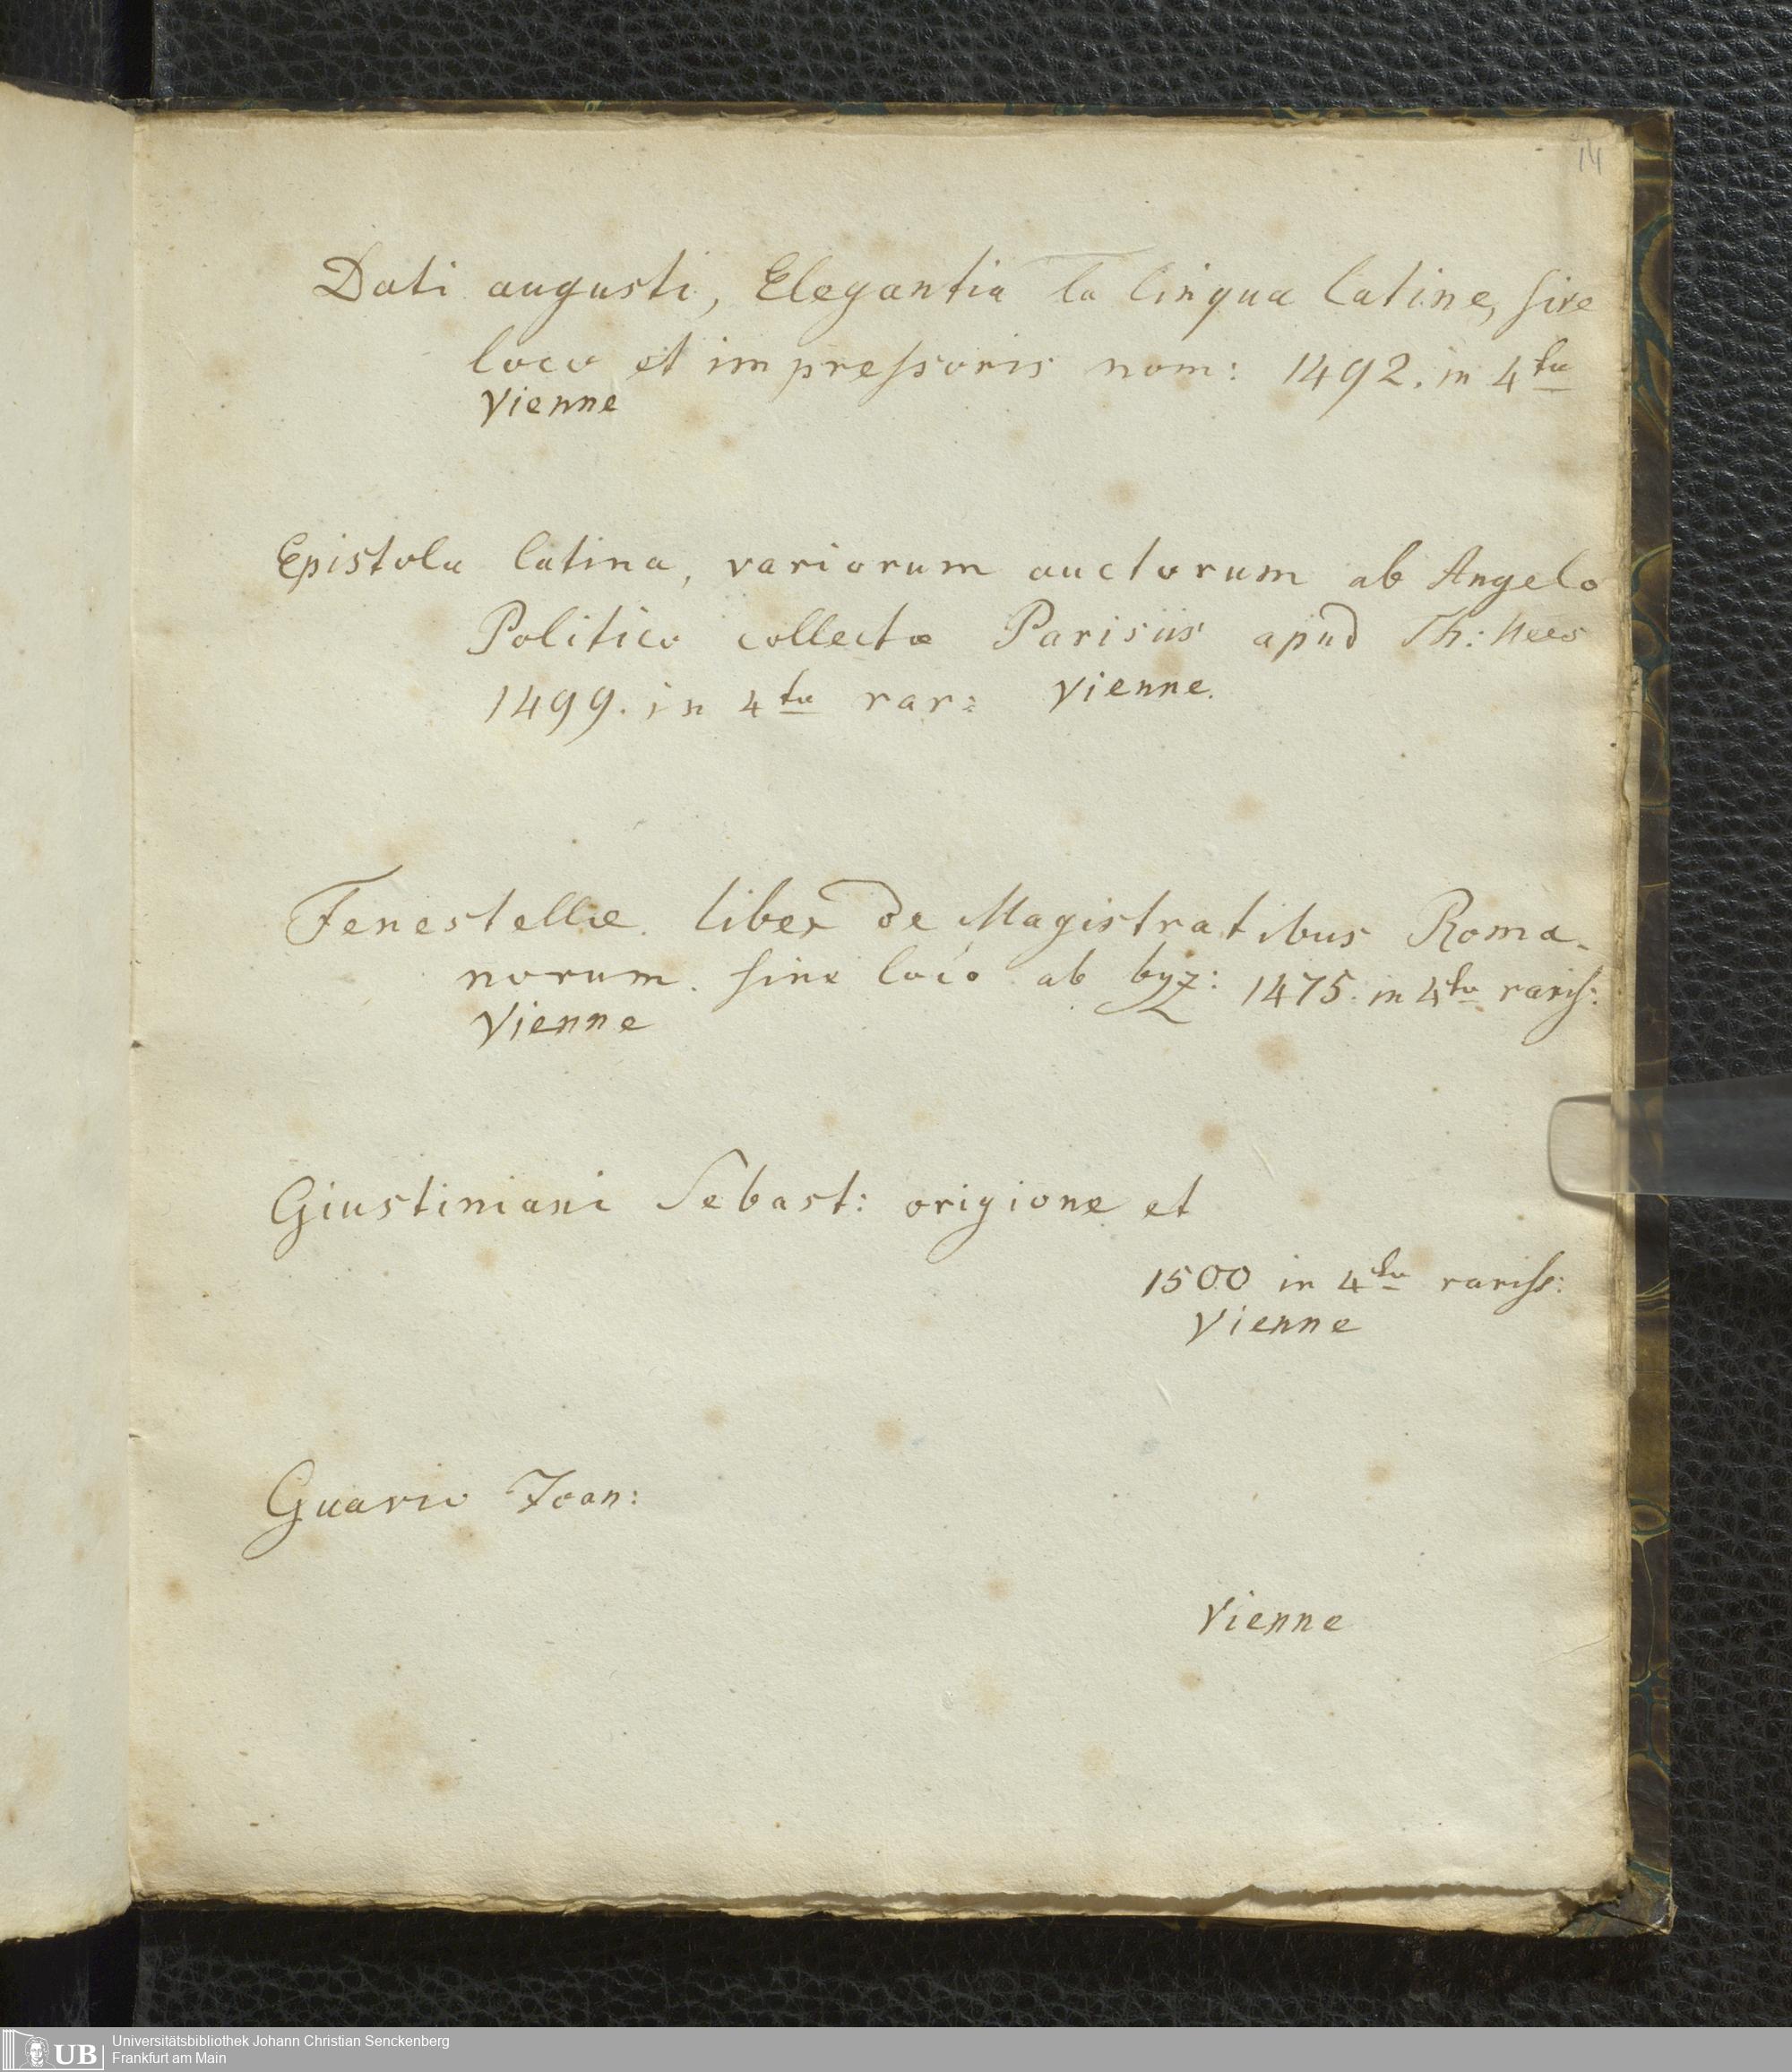 14
Dati augusti, Elegantia la lingua latine, sine
loco et impressoris nom: 1492. in 4to
Vienne
Epistola latina, variorum auctorum ab Angelo
Politico collectæ Parisiis apud Th: Nees
1499. in 4to rar: Vienne.
Fenestellæ. liber de Magistratibus Roma-
norum. sine loco ab byz: 1475. in 4to raris:
Vienne
Giustiniani Sebast: origione et
1500 in 4to rariss:
Vienne
Guario Joan:
Vienne
UB Universitätsbibliothek Johann Christian Senckenberg
Frankfurt am Main